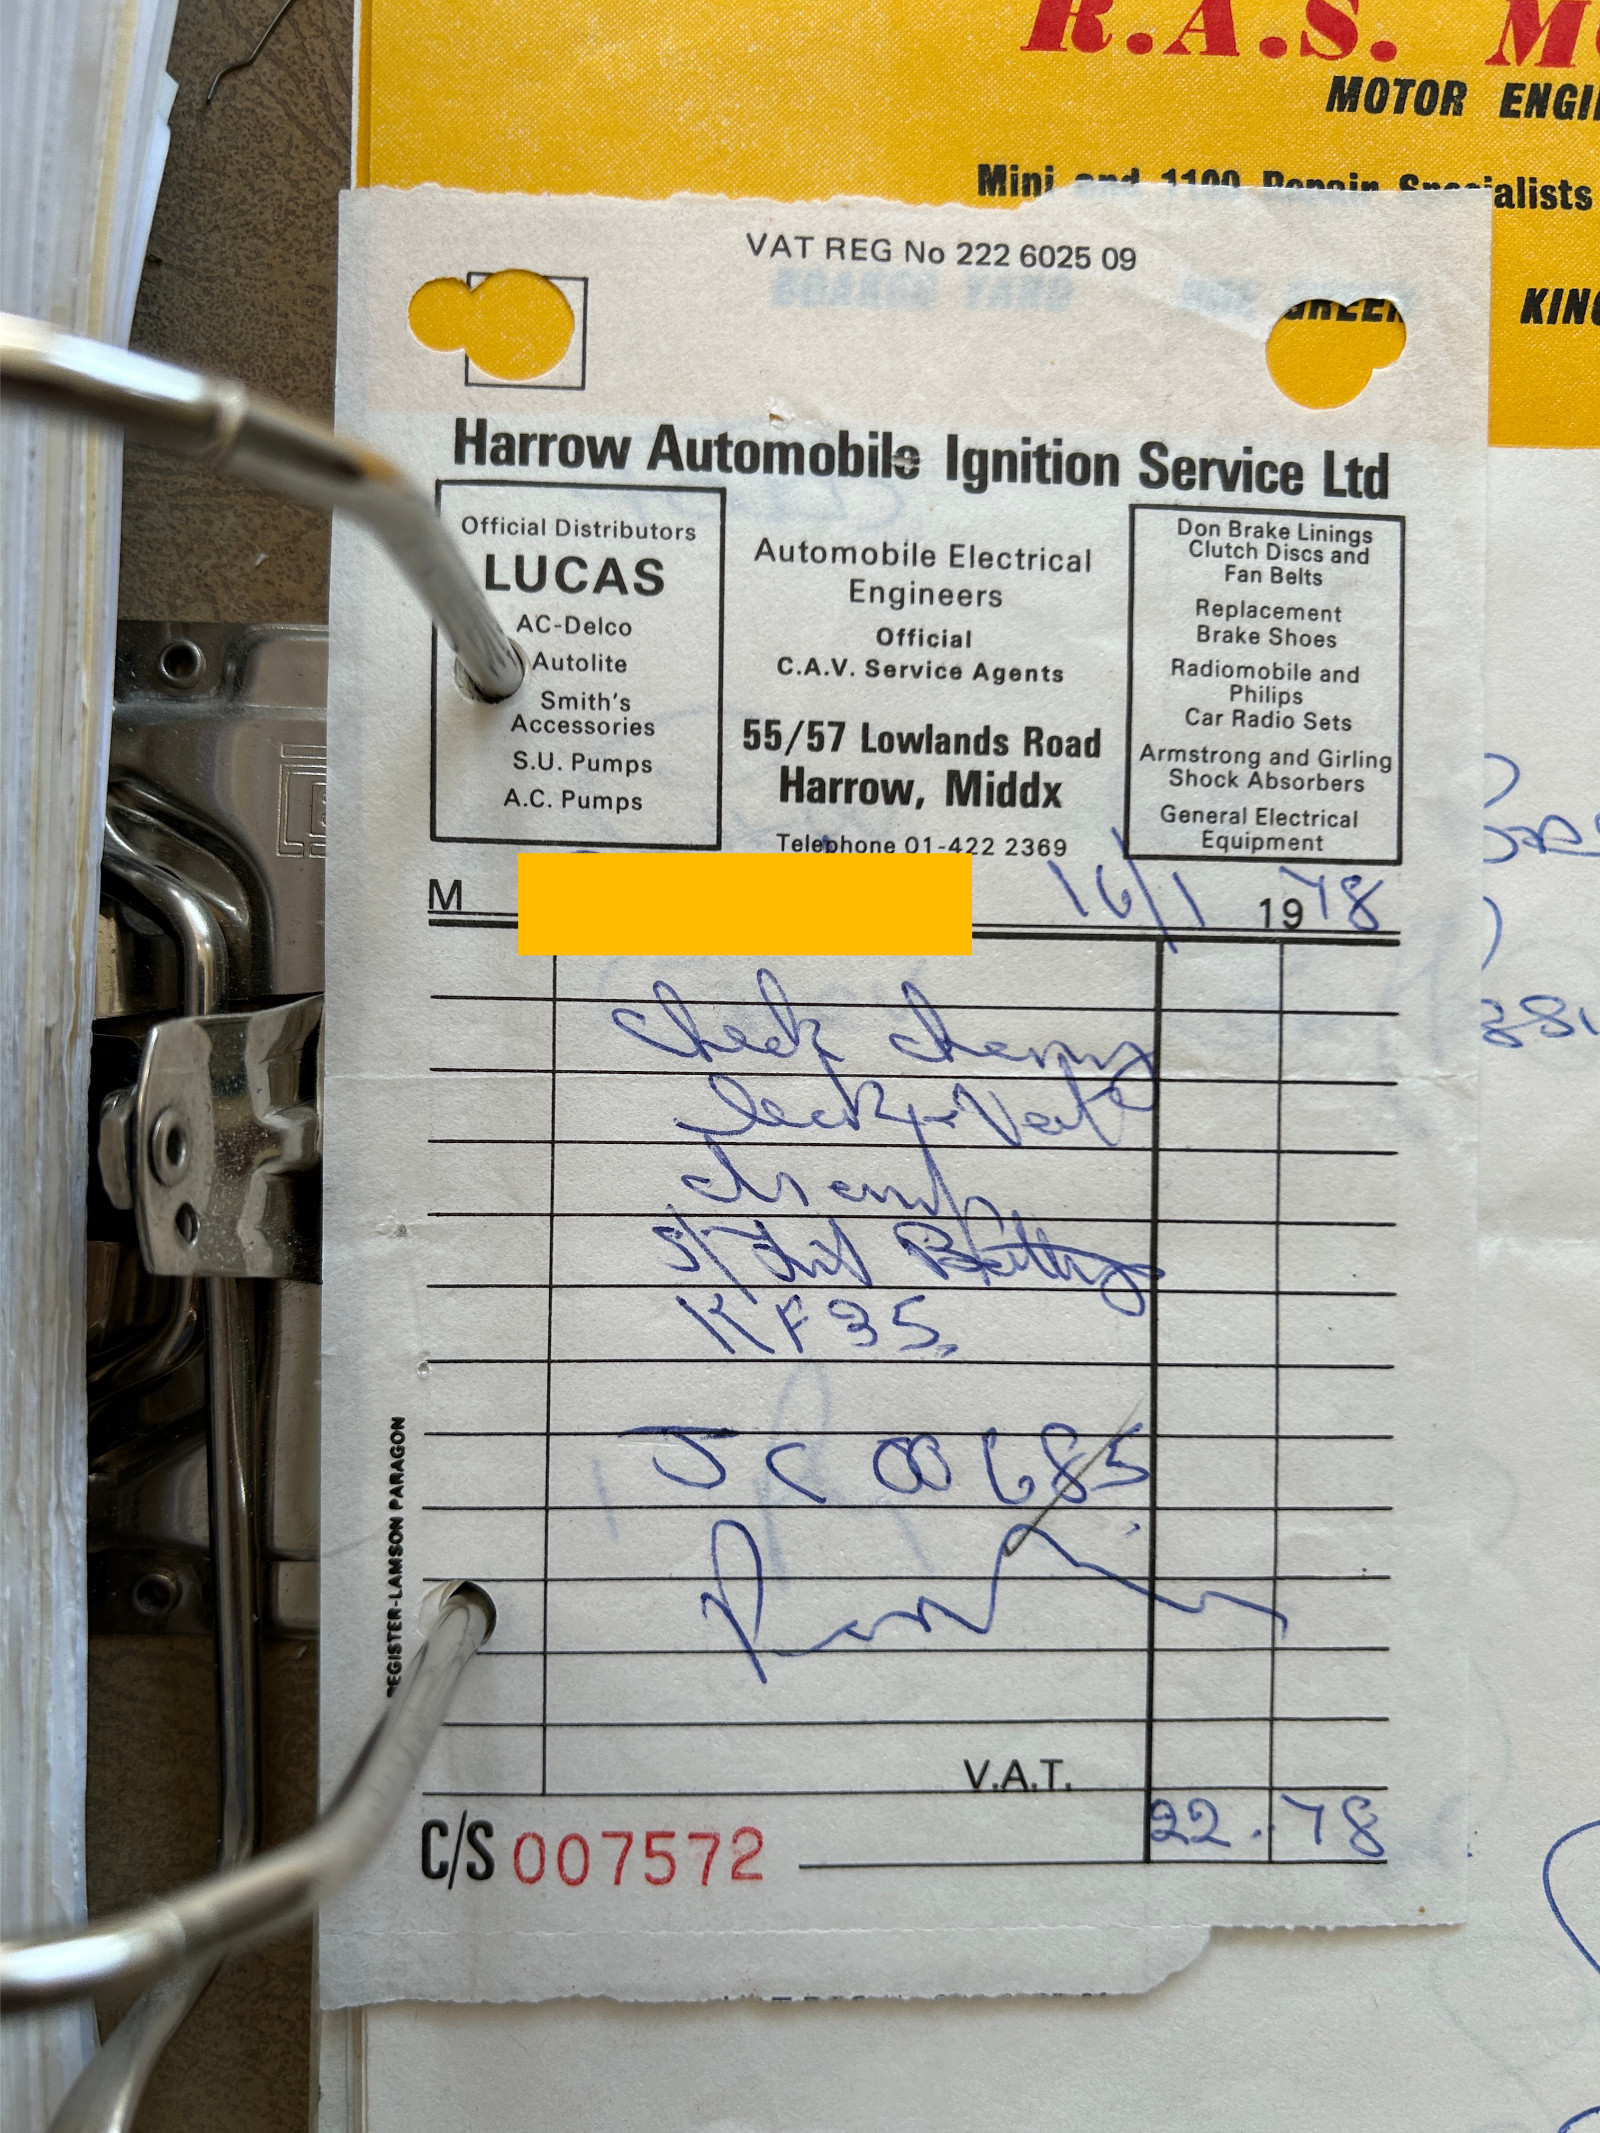 R.A.S. M
MOTOR ENGI
Mini and 1100 Repair Specialists
KING
GREEN
VAT REG No 222 6025 09
Harrow Automobile Ignition Service Ltd
Official Distributors
LUCAS
AC-Delco
Autolite
Smith's
Accessories
S.U. Pumps
A.C. Pumps
Automobile Electrical
Engineers
Official
C.A.V. Service Agents
55/57 Lowlands Road
Harrow, Middx
Telephone 01-422 2369
Don Brake Linings
Clutch Discs and
Fan Belts
Replacement
Brake Shoes
Radiomobile and
Philips
Car Radio Sets
Armstrong and Girling
Shock Absorbers
General Electrical
Equipment
M
16/1 1978
Check
Battery
KF35.
JC 00685
V.A.T.
22.78
C/S 007572
REGISTER-LAMSON PARAGON